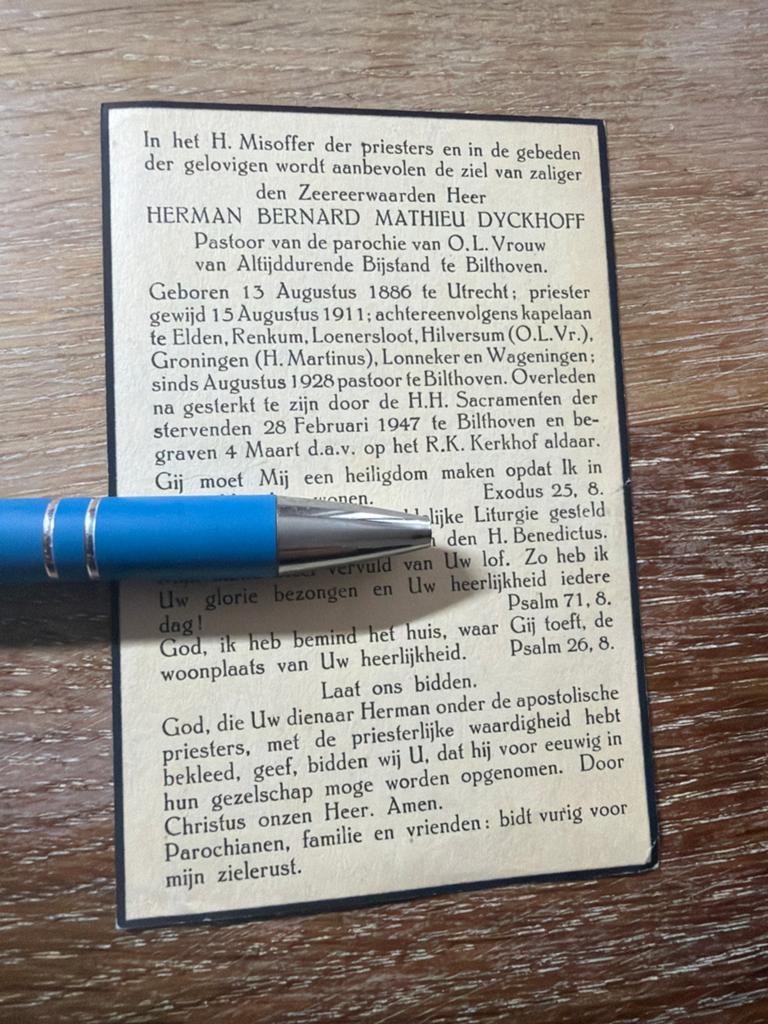 In het H. Misoffer der priesters en in de gebeden
der gelovigen wordt aanbevolen de ziel van zaliger
den Zeereerwaarden Heer
HERMAN BERNARD MATHIEU DYCKHOFF
Pastoor van de parochie van O.L. Vrouw
van Altijddurende Bijstand te Bilthoven.
Geboren 13 Augustus 1886 te Utrecht; priester
gewijd 15 Augustus 1911; achtereenvolgens kapelaan
te Elden, Renkum, Loenersloot, Hilversum (O.L.Vr.),
Groningen (H. Martinus), Lonneker en Wageningen;
sinds Augustus 1928 pastoor te Bilthoven. Overleden
na gesterkt te zijn door de H.H. Sacramenten der
stervenden 28 Februari 1947 te Bilthoven en be-
graven 4 Maart d.a.v. op het R.K. Kerkhof aldaar.
Gij moet Mij een heiligdom maken opdat Ik in
Exodus 25, 8.
Liturgie gesteld
den H. Benedictus.
vervuld van Uw lof. Zo heb ik
Uw glorie bezongen en Uw heerlijkheid iedere
dag! Psalm 71, 8.
God, ik heb bemind het huis, waar Gij toeft, de
woonplaats van Uw heerlijkheid. Psalm 26, 8.
Laat ons bidden.
God, die Uw dienaar Herman onder de apostolische
priesters, met de priesterlijke waardigheid hebt
bekleed, geef, bidden wij U, dat hij voor eeuwig in
hun gezelschap moge worden opgenomen. Door
Christus onzen Heer. Amen.
Parochianen, familie en vrienden: bidt vurig voor
mijn zielerust.